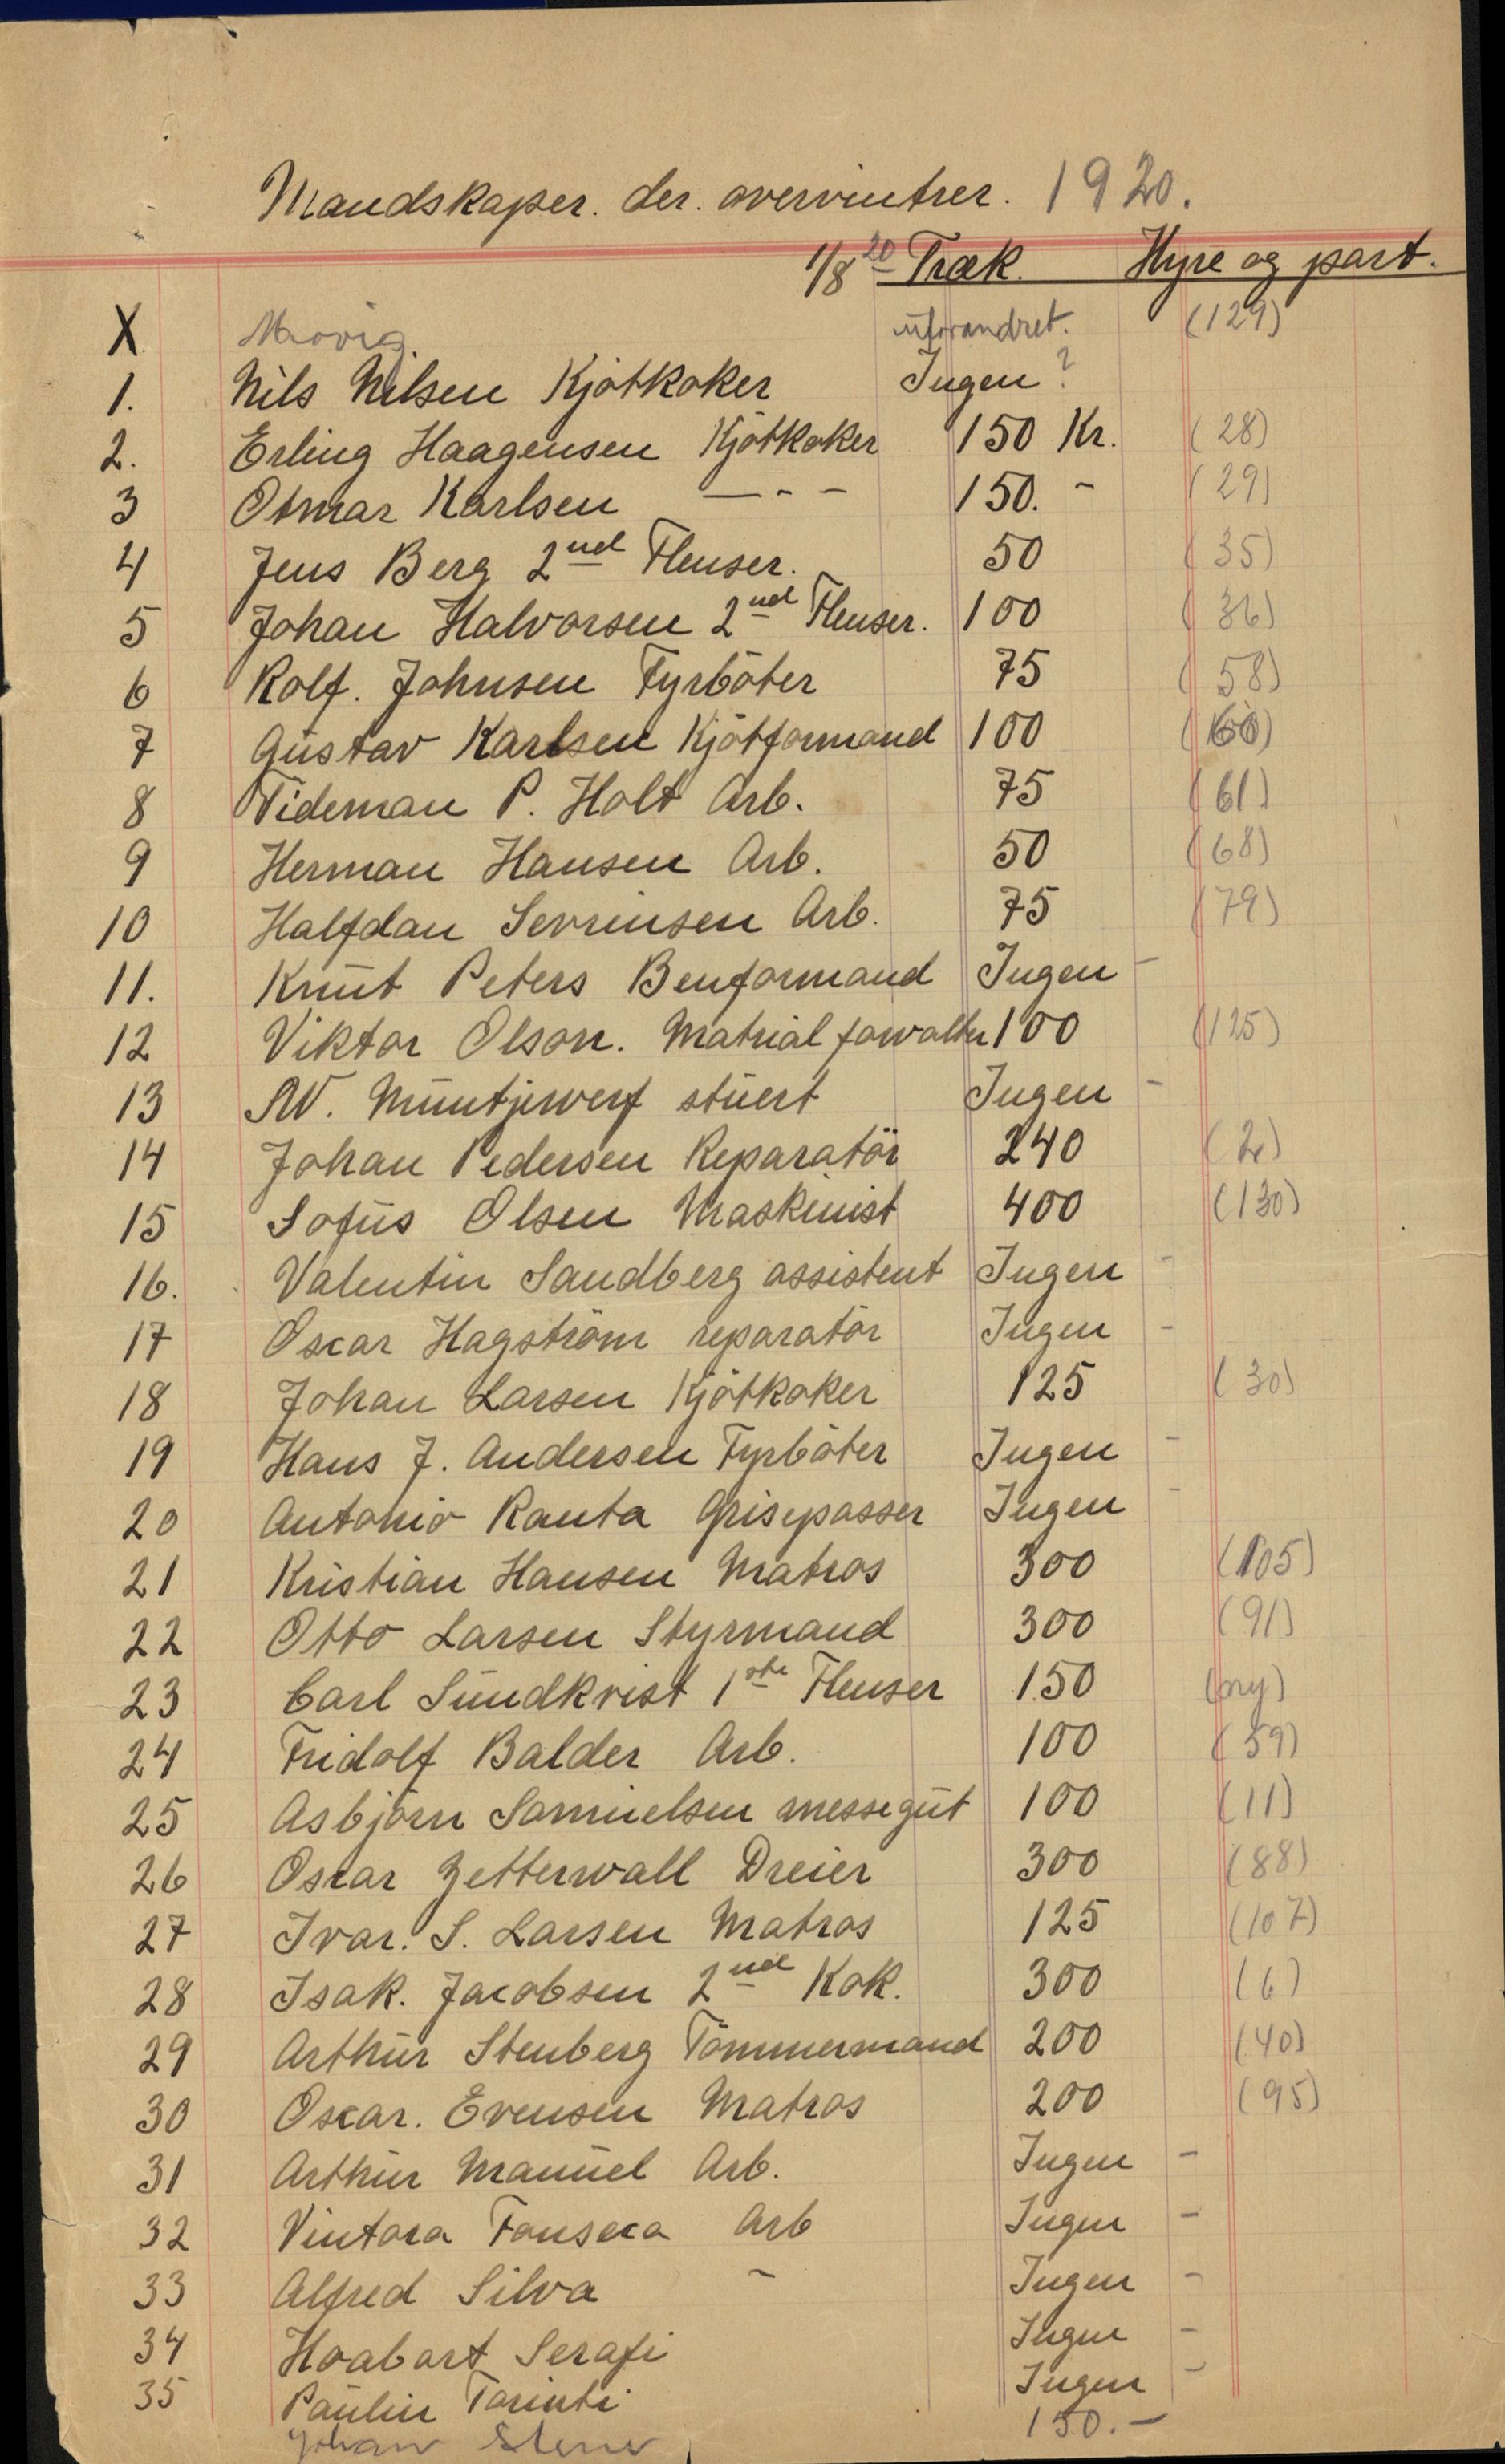 Mandskaper. der. overvintrer. 1920.
1/8 20 Træk. Hyre og part.
X Movig uforandret. (129)
1. Nils Nilsen Kjötkoker Ingen ?
2. Erling Haagensen Kjötkoker 150 Kr. (28)
3 Otmar Karlsen — - - 150. - (29)
4 Jens Berg 2nd Flenser. 50 (35)
5 Johan Halvorsen 2nd Flenser. 100 (36)
6 Rolf. Johnsen Fyrböter 75 (58)
7 Gustav Karlsen Kjötformand 100 (60)
8 Tideman P. Holt Arb. 75 (61)
9 Herman Hansen Arb. 50 (68)
10 Halfdan Sevrinsen Arb. 75 (79)
11. Knut Peters Benformand Ingen -
12 Viktor Olson. Matrial forvalter 100 (125)
13 W. Muntjewerf stuert Ingen -
14 Johan Pedersen Reparatör 240 (2)
15 Sofus Olsen Maskinist 400 (130)
16. Valentin Sandberg assistent Ingen -
17 Oscar Hagström reparatör Ingen -
18 Johan Larsen Kjötkoker 125 (30)
19 Hans J. Andersen Fyrböter Ingen -
20 Antonio Ranta Grisepasser Ingen -
21 Kristian Hansen Matros 300 (105)
22 Otto Larsen Styrmand 300 (91)
23 Carl Sundkvist 1ste Flenser 150 (ny)
24 Fridolf Balder Arb. 100 (59)
25 Asbjörn Samuelsen messegut 100 (11)
26 Oscar Zetterwall Dreier 300 (88)
27 Ivar. S. Larsen Matros 125 (107)
28 Isak. Jacobsen 2nd Kok. 300 (6)
29 Arthur Stenberg Tömmermand 200 (40)
30 Oscar. Evensen Matros 200 (95)
31 Arthur Manuel Arb. Ingen -
32 Vintora Fonseca Arb Ingen -
33 Alfred Silva - Ingen -
34 Hoabart Serafi Ingen -
35 Paulin Torinti Ingen -
Johan 150.-